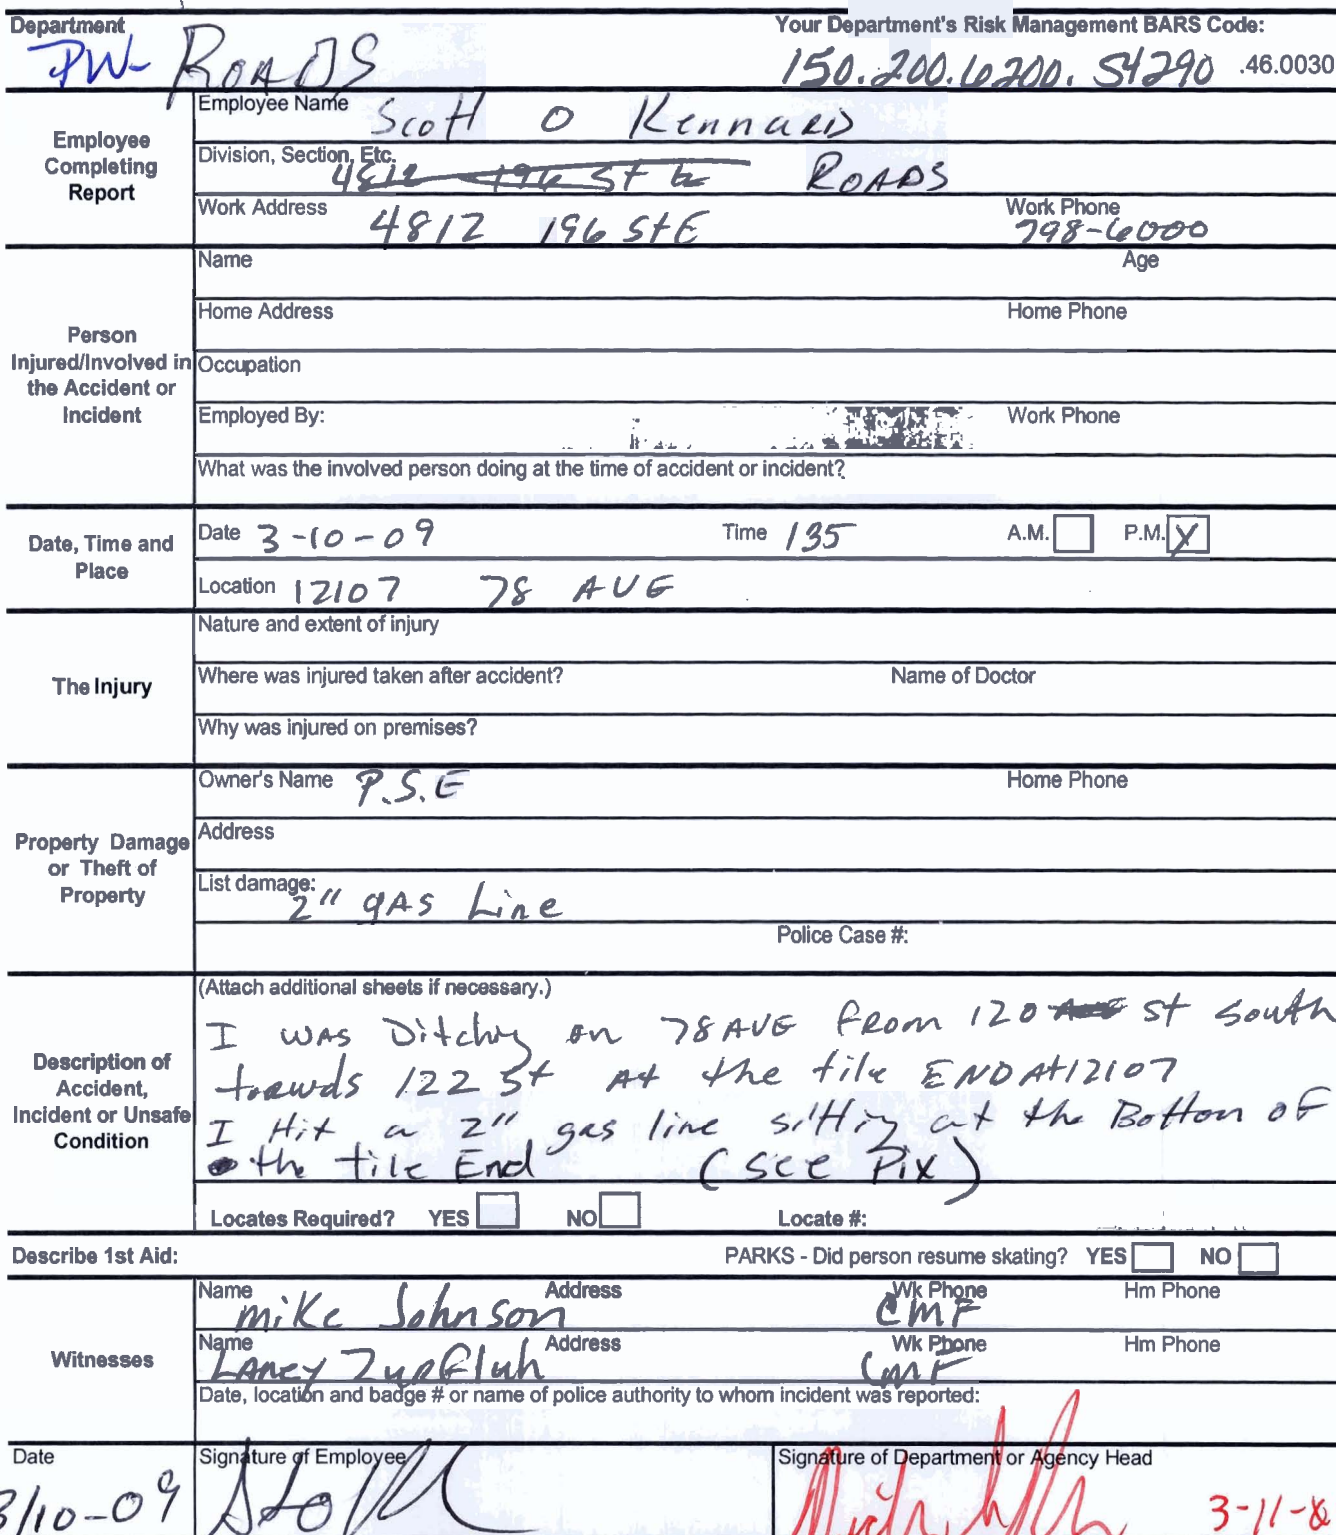 Department Your Department's Risk Management BARS Code:
PW- ROADS 150.200.6200. 54290 .46.0030
Employee Completing Report
Employee Name Scott O Kennard
Division, Section, Etc. 4812 196 St E ROADS
Work Address 4812 196 St E Work Phone 798-6000
Person Injured/Involved in the Accident or Incident
Name Age
Home Address Home Phone
Occupation
Employed By: Work Phone
What was the involved person doing at the time of accident or incident?
Date, Time and Place
Date 3-10-09 Time 135 A.M. P.M. X
Location 12107 78 AVE
The Injury
Nature and extent of injury
Where was injured taken after accident? Name of Doctor
Why was injured on premises?
Property Damage or Theft of Property
Owner's Name P.S.E Home Phone
Address
List damage: 2" gas Line
Police Case #:
Description of Accident, Incident or Unsafe Condition
(Attach additional sheets if necessary.)
I was Ditching on 78 AVE from 120 St South
towards 122 St At the tile END At 12107
I Hit a 2" gas line sitting at the Bottom of
the tile End (see Pix)
Locates Required? YES NO Locate #:
Describe 1st Aid: PARKS - Did person resume skating? YES NO
Witnesses
Name Mike Johnson Address Wk Phone CMF Hm Phone
Name Laney Zurfluh Address Wk Phone CMF Hm Phone
Date, location and badge # or name of police authority to whom incident was reported:
Date Signature of Employee Signature of Department or Agency Head
3/10-09 3-11-